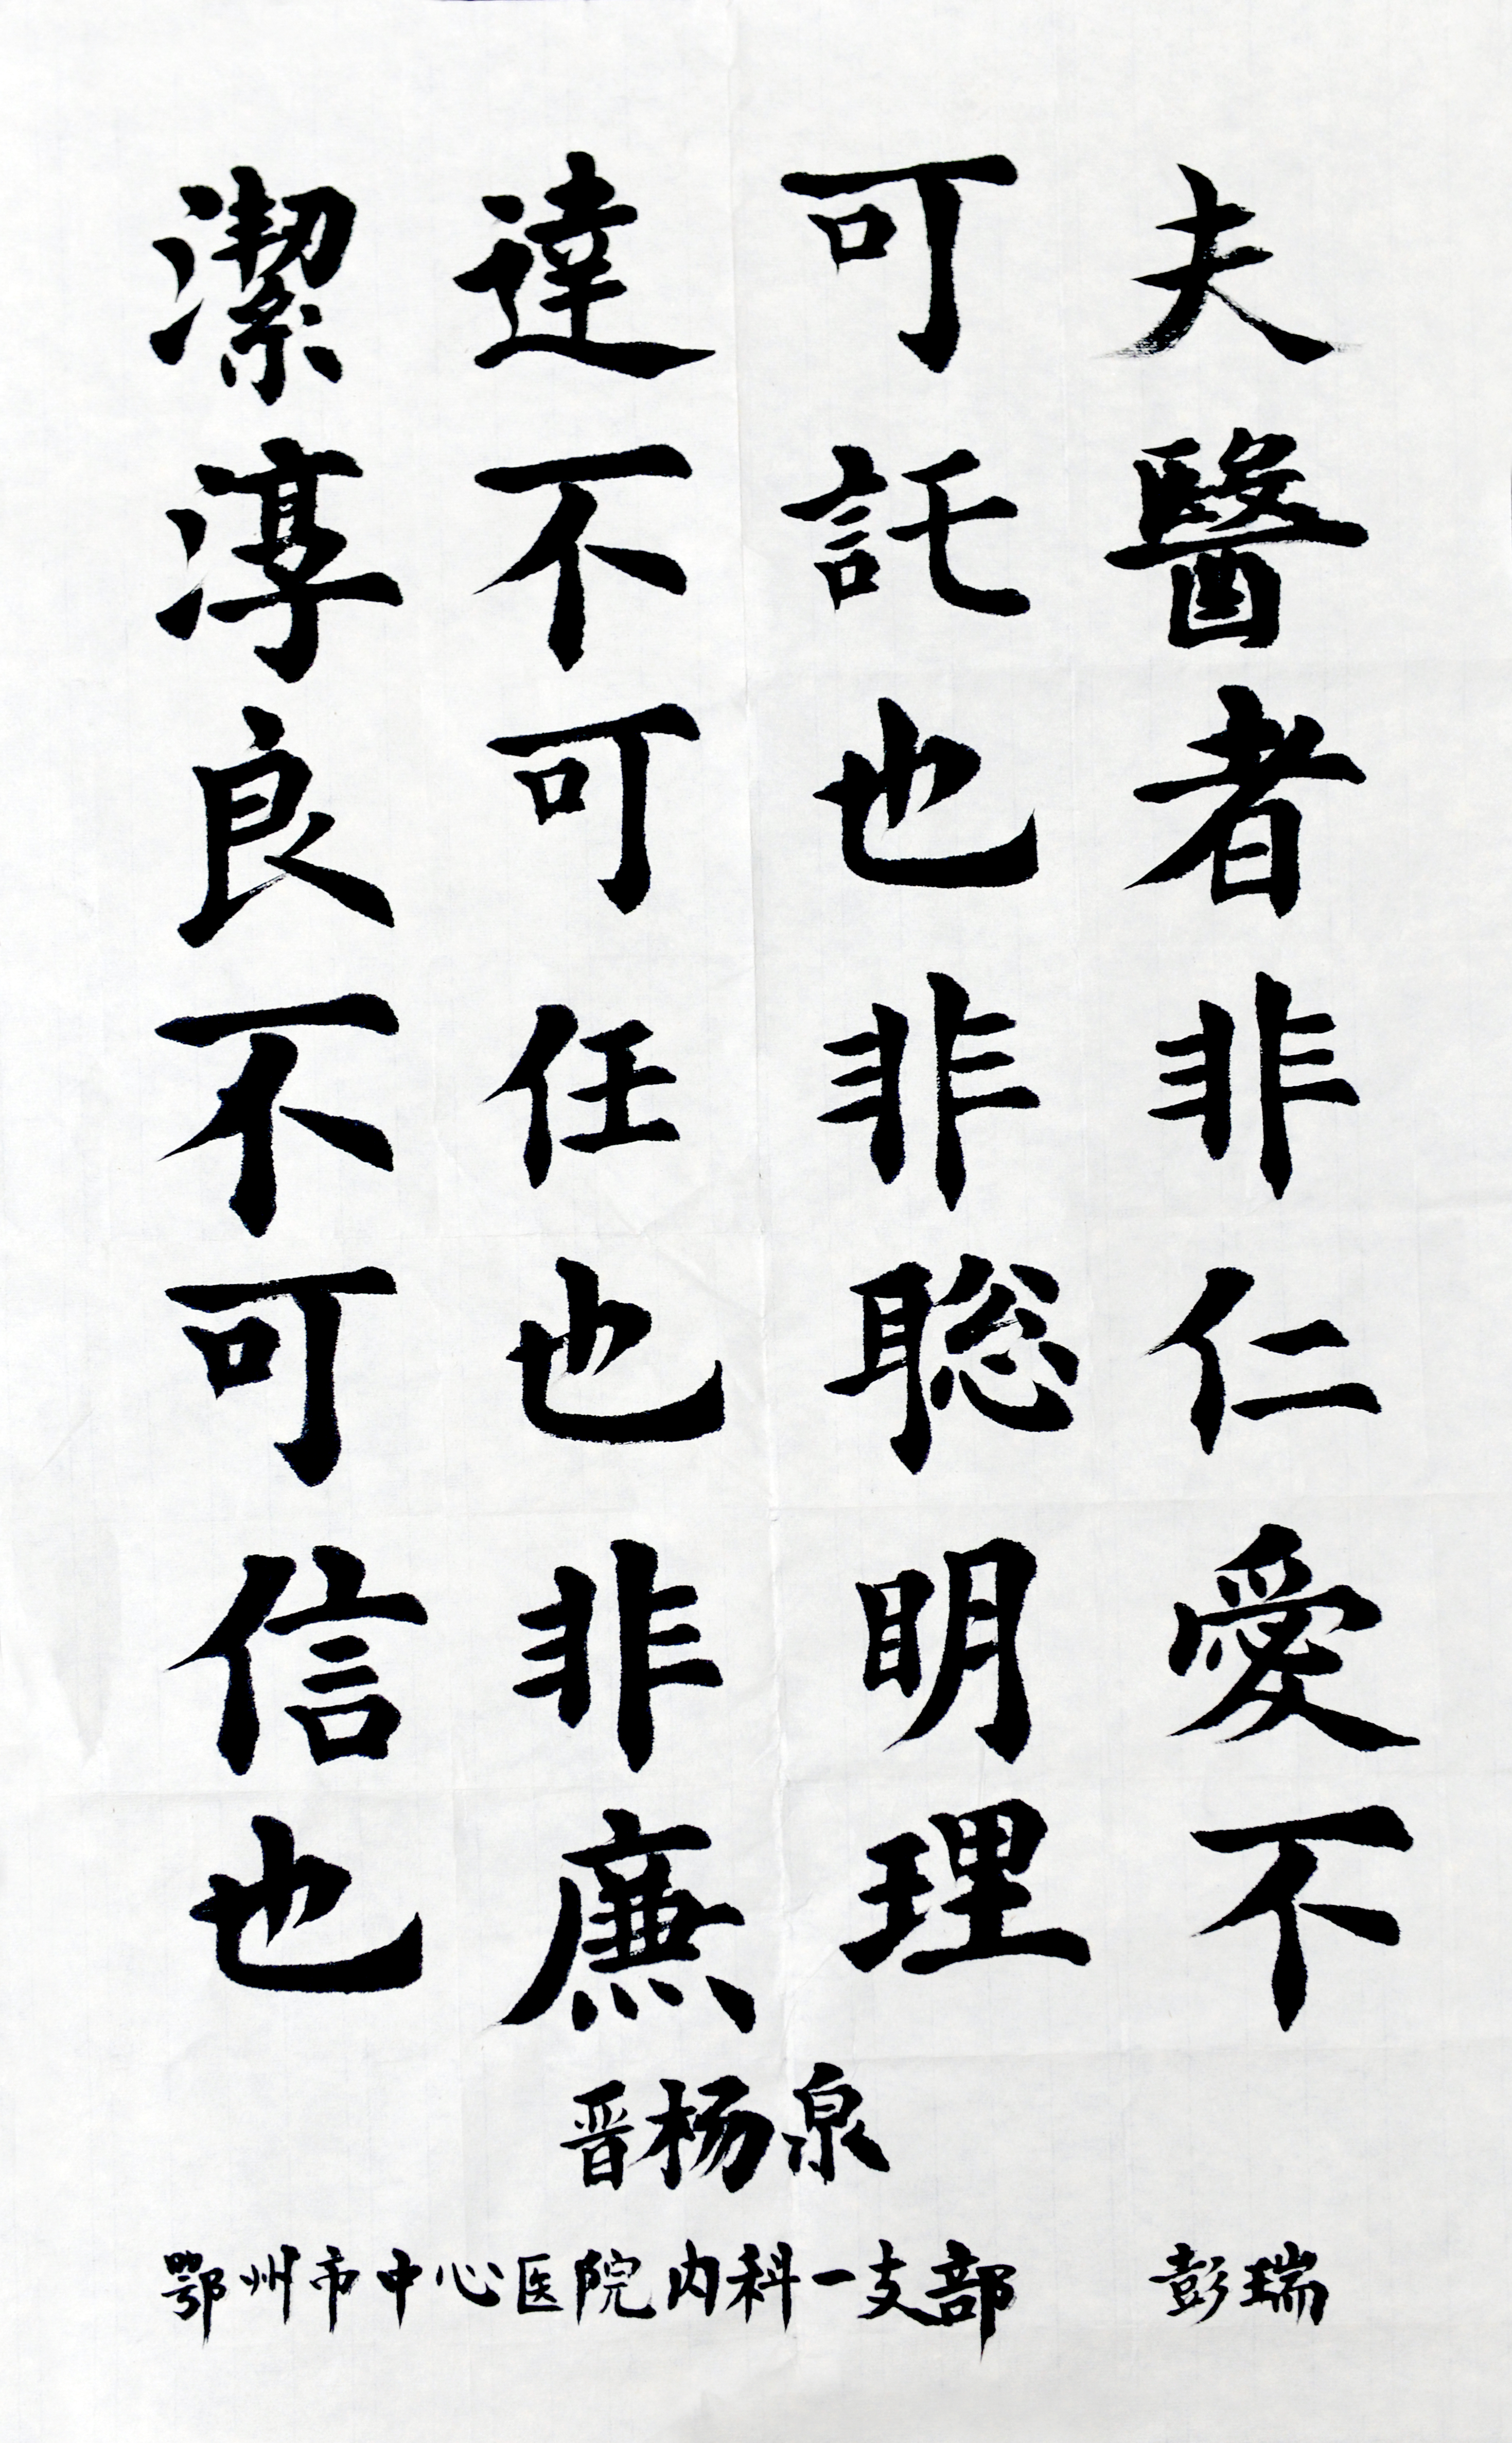 夫醫者非仁愛不
可託也非聡明理
達不可任也非廉
潔淳良不可信也
晋杨泉
鄂州市中心医院内科一支部 彭瑞